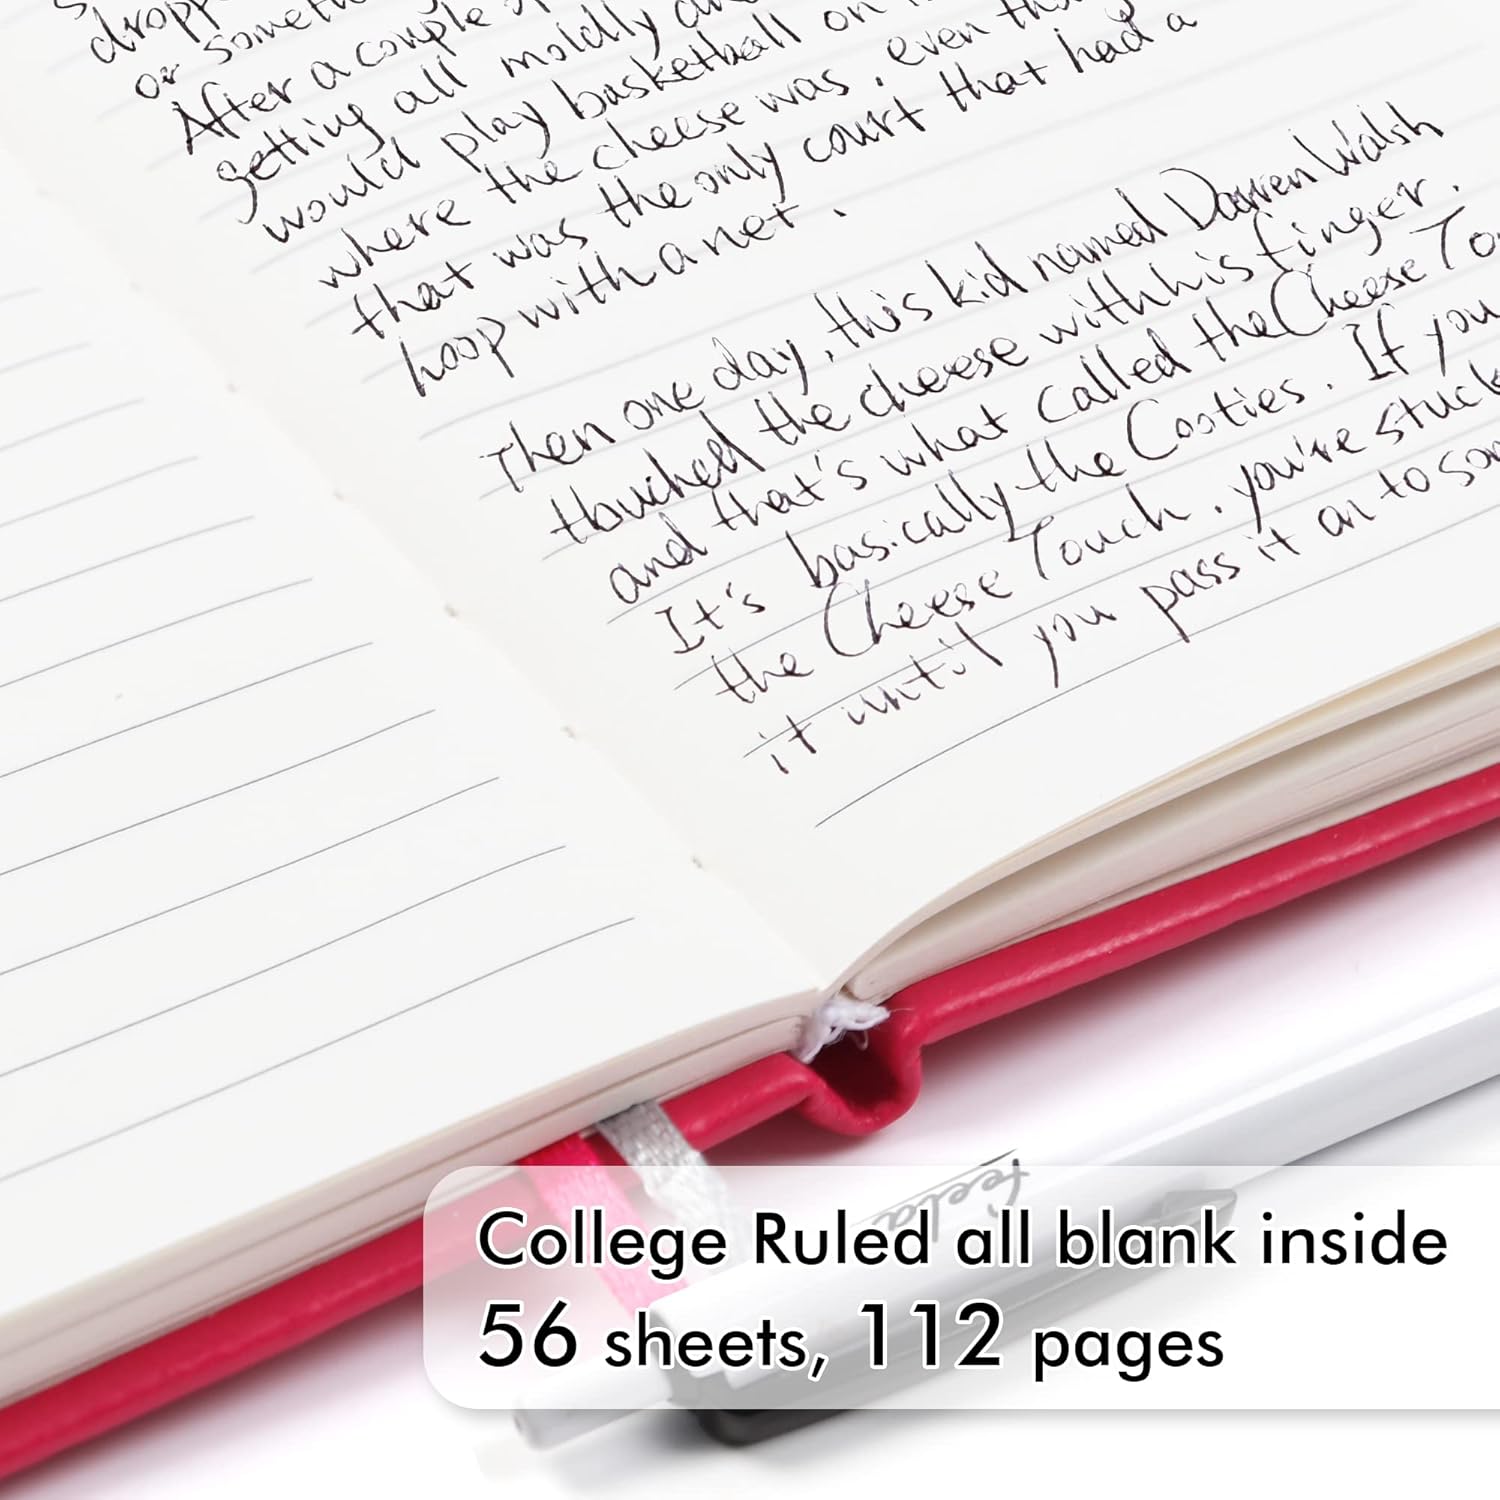 dropp
or someth
After a couple
getting all moldly and
would play basketball on
where the cheese was, even tho
that was the only court that had a
hoop with a net.
Then one day, this kid named Darren Walsh
thouched the cheese with his finger.
and that's what called the Cheese To
It's basically the Cooties. If you
the Cheese Touch, you're stuck
it until you pass it on to so
feela
College Ruled all blank inside
56 sheets, 112 pages